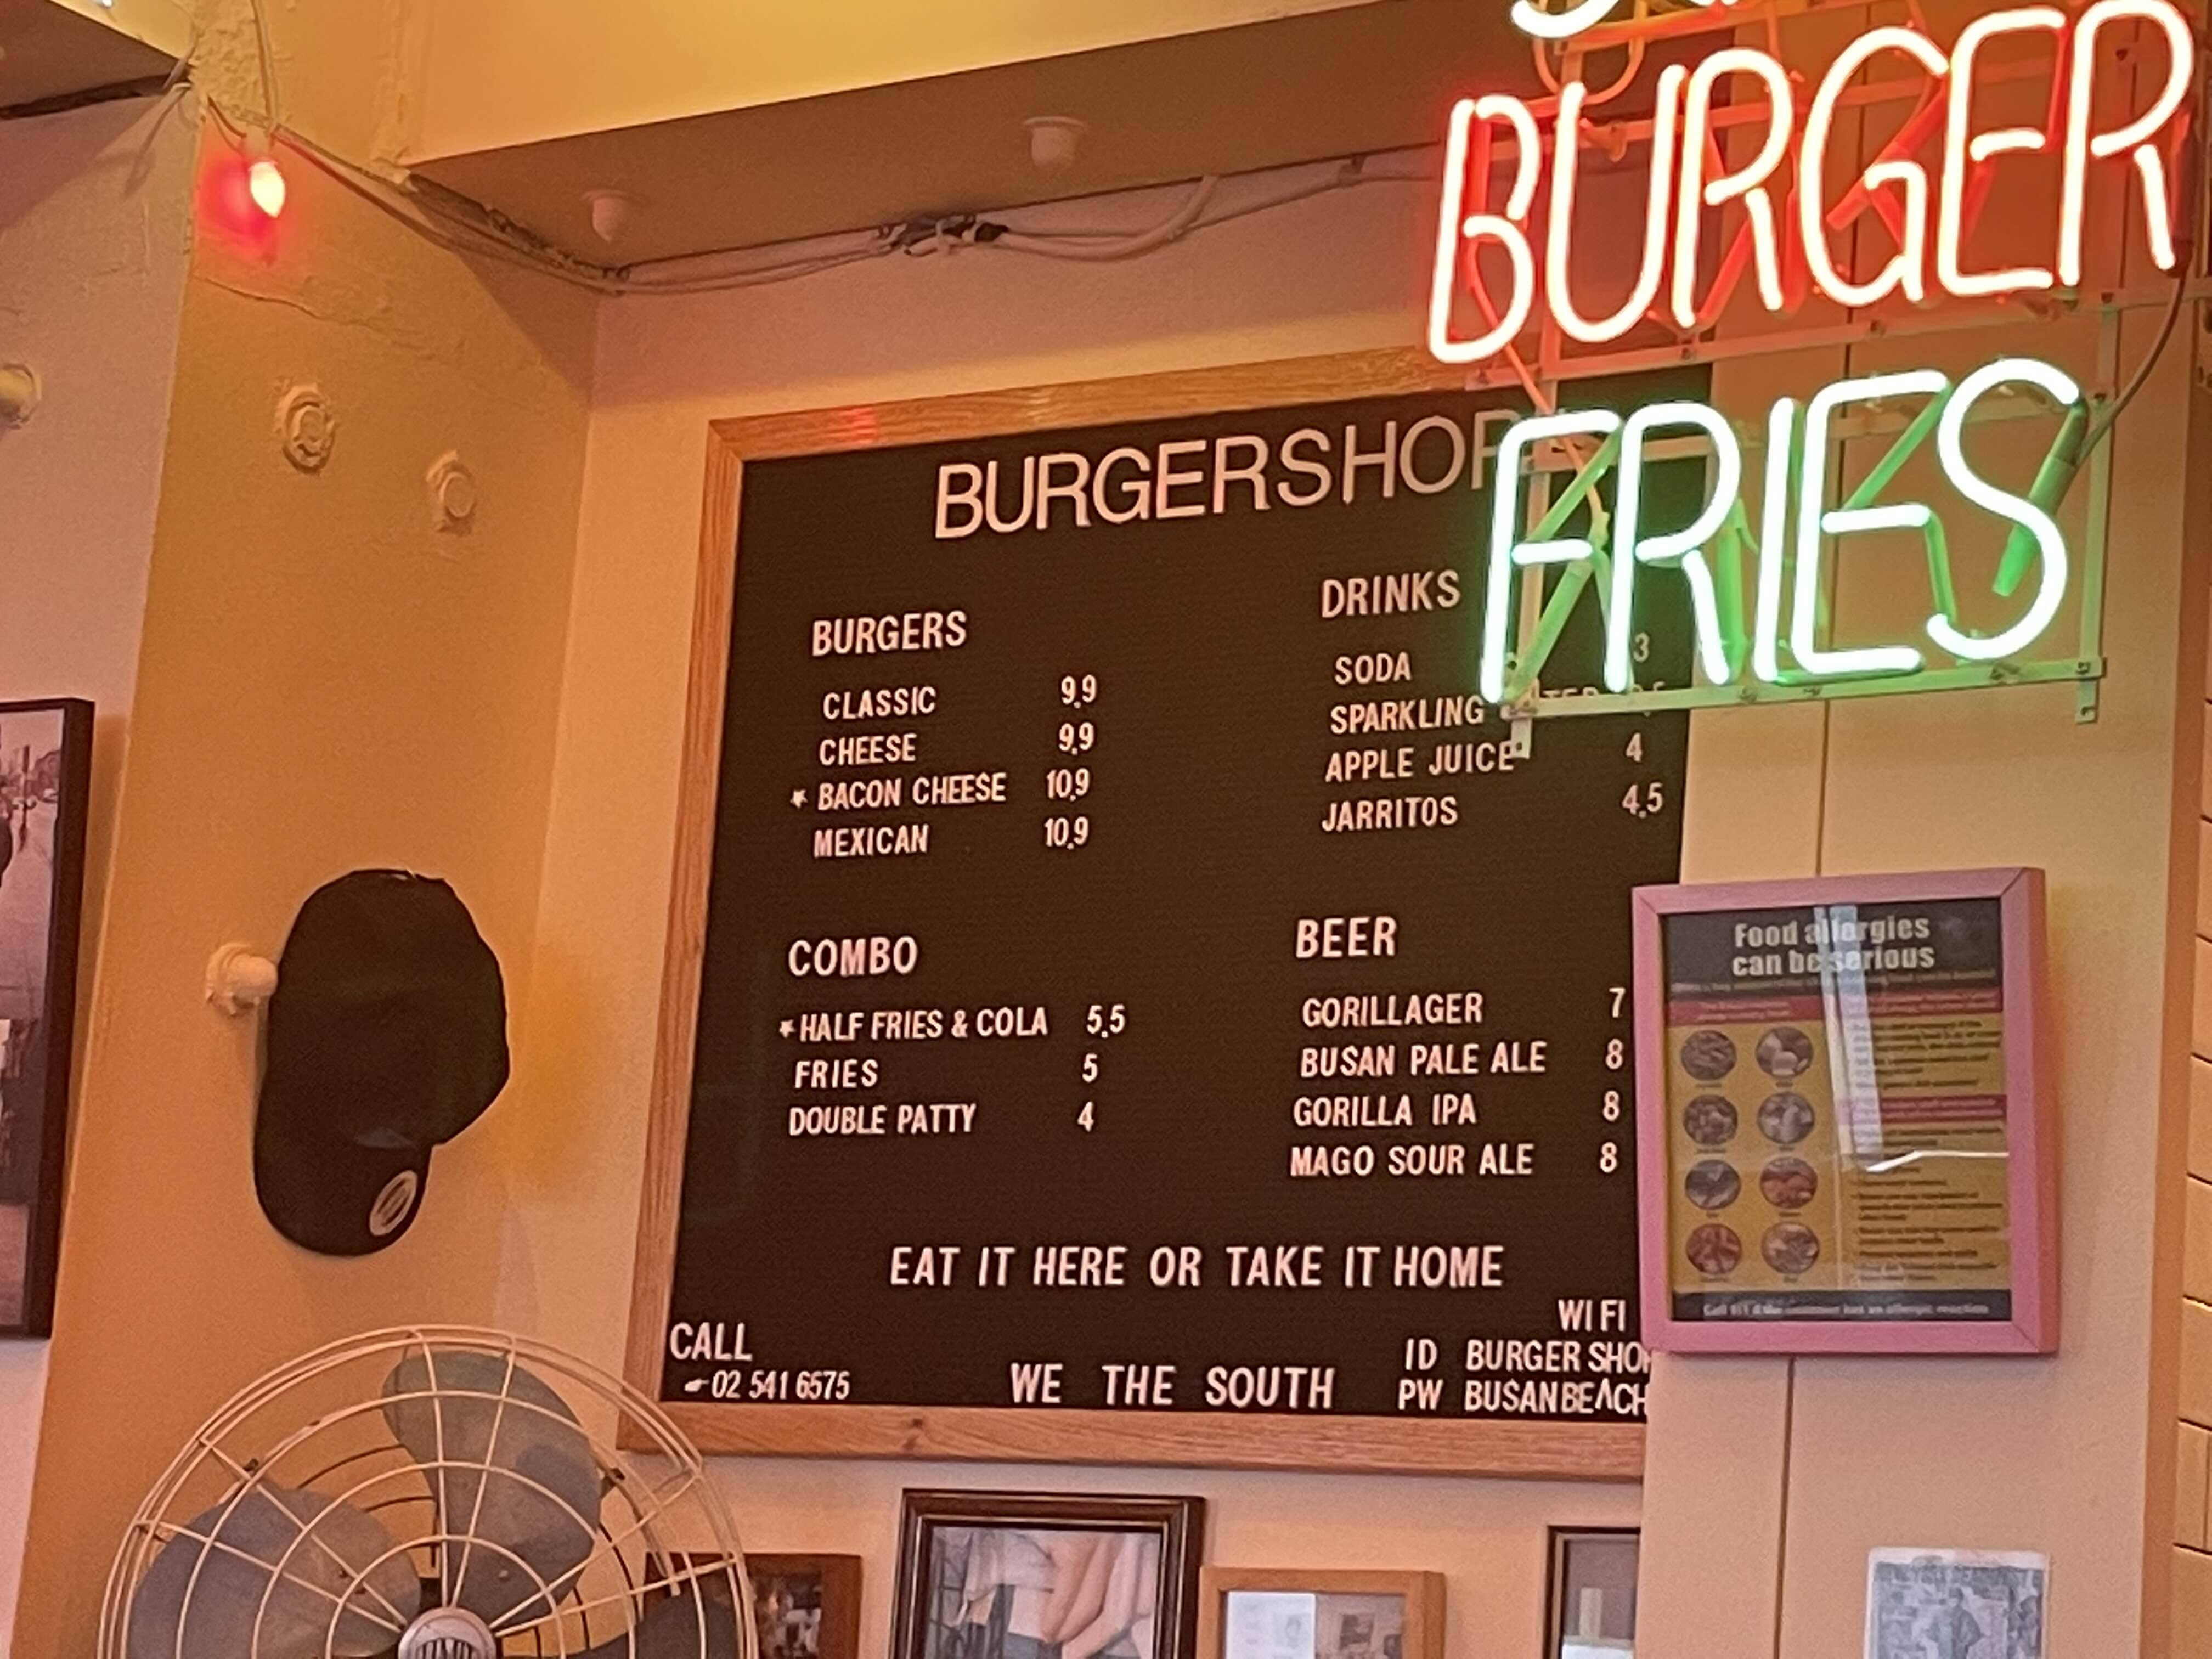 BURGER
FRIES
BURGERSHOP
BURGERS
CLASSIC 9.9
CHEESE 9.9
* BACON CHEESE 10.9
MEXICAN 10.9
COMBO
* HALF FRIES & COLA 5.5
FRIES 5
DOUBLE PATTY 4
DRINKS
SODA 3
SPARKLING
APPLE JUICE 4
JARRITOS 4.5
BEER
GORILLAGER 7
BUSAN PALE ALE 8
GORILLA IPA 8
MAGO SOUR ALE 8
EAT IT HERE OR TAKE IT HOME
CALL
☛ 02 541 6575
WE THE SOUTH
WIFI
ID BURGER SHOP
PW BUSANBEACH
Food allergies
can be serious
Call 911 if the customer has an allergic reaction